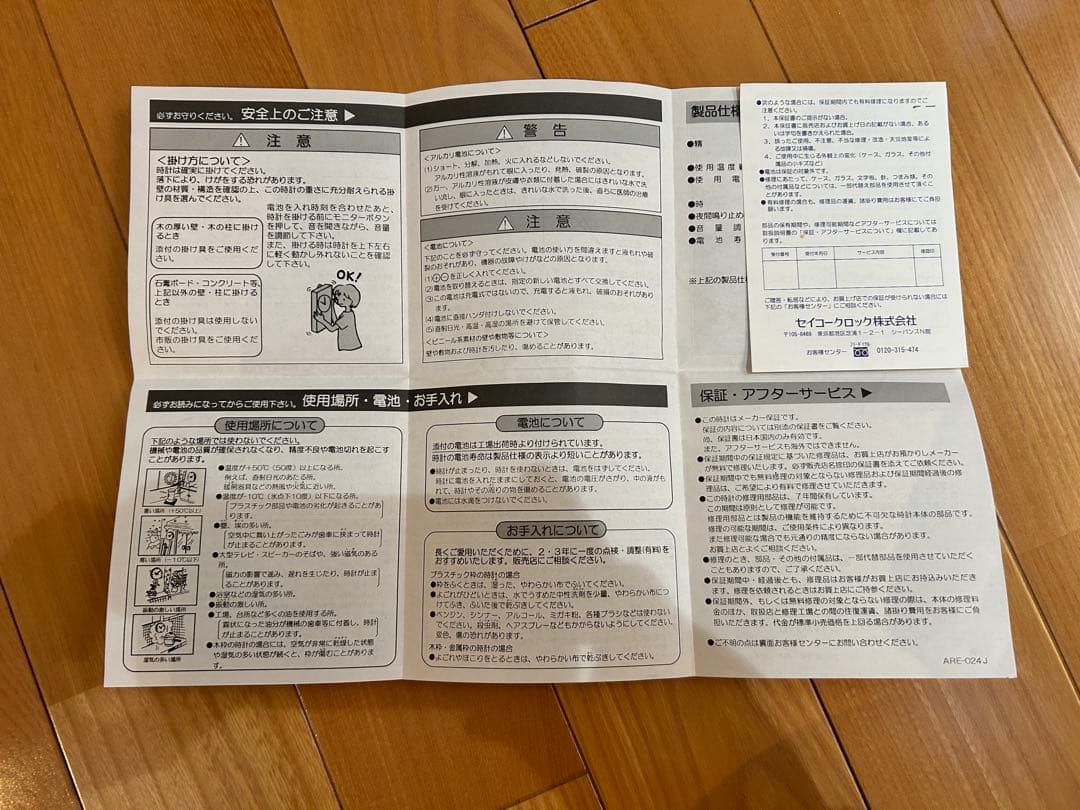 必ずお守りください。 安全上のご注意 ▶
⚠ 注 意
<掛け方について>
時計は確実に掛けてください。
落下により、けがをする恐れがあります。
壁の材質・構造を確認の上、この時計の重さに充分耐えられる掛
け具を選んでください。
木の厚い壁・木の柱に掛け
るとき
添付の掛け具をご使用くだ
さい。
石膏ボード・コンクリート等、
上記以外の壁・柱に掛ける
とき
添付の掛け具は使用しない
でください。
市販の掛け具をご使用くだ
さい。
電池を入れ時刻を合わせたあと、
時計を掛ける前にモニターボタン
を押して、音を聞きながら、音量
を調節して下さい。
また、掛ける時は時計を上下左右
に軽く動かし外れないことを確認
して下さい。
OK!
⚠ 警 告
<アルカリ電池について>
(1)ショート、分解、加熱、火に入れるなどしないでください。
アルカリ性溶液がもれて眼に入ったり、発熱、破裂の原因となります。
(2)万一、アルカリ性溶液が皮膚や衣類に付着した場合にはきれいな水で洗
い流し、眼に入ったときは、きれいな水で洗った後、直ちに医師の治療
を受けてください。
⚠ 注 意
<電池について>
下記のことを必ず守ってください。電池の使い方を間違えますと液もれや破
裂のおそれがあり、機器の故障やけがなどの原因となります。
(1)⊕⊖を正しく入れてください。
(2)電池を取り替えるときは、指定の新しい電池とすべて交換してください。
(3)この電池は充電式ではないので、充電すると液もれ、破損のおそれがあり
ます。
(4)電池に直接ハンダ付けしないでください。
(5)直射日光・高温・高湿の場所を避けて保管してください。
<ビニール系素材の壁や敷物等について>
壁や敷物および時計を汚したり、傷めることがあります。
製品仕様
●精
●使用温度範
●使 用 電
●時
●夜間鳴り止め
●音 量 調
●電 池 寿
※上記の製品仕
●次のような場合には、保証期間内でも有料修理になりますのでご
注意ください。
1. 本保証書のご提示がない場合。
2. 本保証書に販売店名およびお買上げ日の記載がない場合、ある
いは字句を書きかえられた場合。
3. 誤ったご使用、不注意、不当な修理・改造・天災地変等によ
る故障又は損傷。
4. ご使用中に生じる外観上の変化(ケース、ガラス、その他付
属品の小キズなど)
●電池は保証の対象外です。
●修理にあたって、ケース、ガラス、文字板、針、つまみ類、その
他の付属品などについては、一部代替部品を使用させて頂くこ
とがあります。
●有料修理の場合も、修理品の運賃、諸掛り費用はお客様にてご負担
願います。
部品の保有期間や、修理可能期間などアフターサービスについては
取扱説明書の「保証・アフターサービスについて」欄に記載してあ
ります。
受付番号 受付年月日 サービス内容 確認印
ご贈答・転居などにより、お買上げ店での保証が受けられない場合には
下記の「お客様センター」にご相談ください。
セイコークロック株式会社
〒105-8468 東京都港区芝浦1-2-1 シーバンスN館
お客様センター フリーダイヤル 0120-315-474
必ずお読みになってからご使用下さい。 使用場所・電池・お手入れ ▶
使用場所について
下記のような場所では使わないでください。
機械や電池の品質が確保されなくなり、精度不良や電池切れを起こす
ことがあります。
暑い場所(+50℃以上)
寒い場所(-10℃以下)
振動の激しい場所
湿気の多い場所
●温度が+50℃(50度)以上になる所。
例えば、直射日光のあたる所。
暖房器具などの熱風や火気に近い所。
●温度が-10℃(氷点下10度)以下になる所。
プラスチック部品や電池の劣化が起きることがあ
ります。
●塵、埃の多い所。
空気中に舞い上がったごみが歯車に挟まって時計
が止まることがあります。
●大型テレビ・スピーカーのそばや、強い磁気のある
所。
磁力の影響で進み、遅れを生じたり、時計が止ま
ることがあります。
●浴室などの湿気の多い所。
●振動の激しい所。
●工場、台所など多くの油を使用する所。
霧状になった油分が機械の歯車等に付着し、時計
が止まることがあります。
●木枠の時計の場合には、空気が非常に乾燥した状態
や湿気の多い状態が続くと、枠が傷むことがありま
す。
電池について
添付の電池は工場出荷時より付けられています。
時計の電池寿命は製品仕様の表示より短いことがあります。
●時計が止まったり、時計を使わないときは、電池をはずしてください。
時計に電池を入れたままにしておくと、電池の電圧がさがり、中の液がも
れて、時計やその周りの物を傷めることがあります。
●電池には水滴をつけないでください。
お手入れについて
長くご愛用いただくために、2・3年に一度の点検・調整(有料)を
おすすめいたします。販売店にご相談ください。
プラスチック枠の時計の場合
●枠をふくときは、湿った、やわらかい布でふいてください。
●よごれがひどいときは、水でうすめた中性洗剤を少量、やわらかい布につ
けてふき、ふいた後で乾ぶきしてください。
●ベンジン、シンナー、アルコール、ミガキ粉、各種ブラシなどは使わない
でください。殺虫剤、ヘアスプレーなどもかからないようにしてください。
変色、傷の恐れがあります。
木枠・金属枠の時計の場合
●よごれやほこりをとるときは、やわらかい布で乾ぶきしてください。
保証・アフターサービス ▶
●この時計はメーカー保証です。
保証の内容については別添の保証書をご覧ください。
尚、保証書は日本国内のみ有効です。
また、アフターサービスも海外ではできません。
●保証期間中の保証規定に基づいた修理品は、お買上げ店がお預かりしメーカー
が無料で修理いたします。必ず販売店名捺印の保証書を添えてご依頼ください。
●保証期間中でも無料修理の対象とならない修理品および保証期間経過後の修
理品は、ご希望により有料で修理させていただきます。
●この時計の修理用部品は、7年間保有しています。
この期間は原則として修理が可能です。
修理用部品とは製品の機能を維持するために不可欠な時計本体の部品です。
修理の可能な期間は、ご使用条件により異なります。
また修理可能な場合でも元通りの精度にならない場合があります。
お買上店とよくご相談ください。
●修理のとき、部品・その他の付属品は、一部代替部品を使用させていただく
こともありますので、ご了承ください。
●保証期間中・経過後とも、修理品はお客様がお買上店にお持込みいただきま
す。修理を依頼されるときはお買上店にご持参ください。
●保証期間外、もしくは無料修理の対象とならない修理の際は、本体の修理料
金のほか、取扱店と修理工場との間の往復運賃、諸掛り費用をお客様にご負
担いただきます。代金が標準小売価格を上回る場合があります。
●ご不明の点は裏面お客様センターにお問い合わせください。
ARE-024J